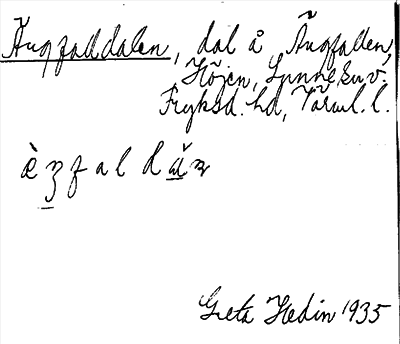 Ängfalldalen, dal å Ängfallen,
Höjen, Lunne sn.
Fryksd. hd, Värml. l.
Greta Hedin 1935